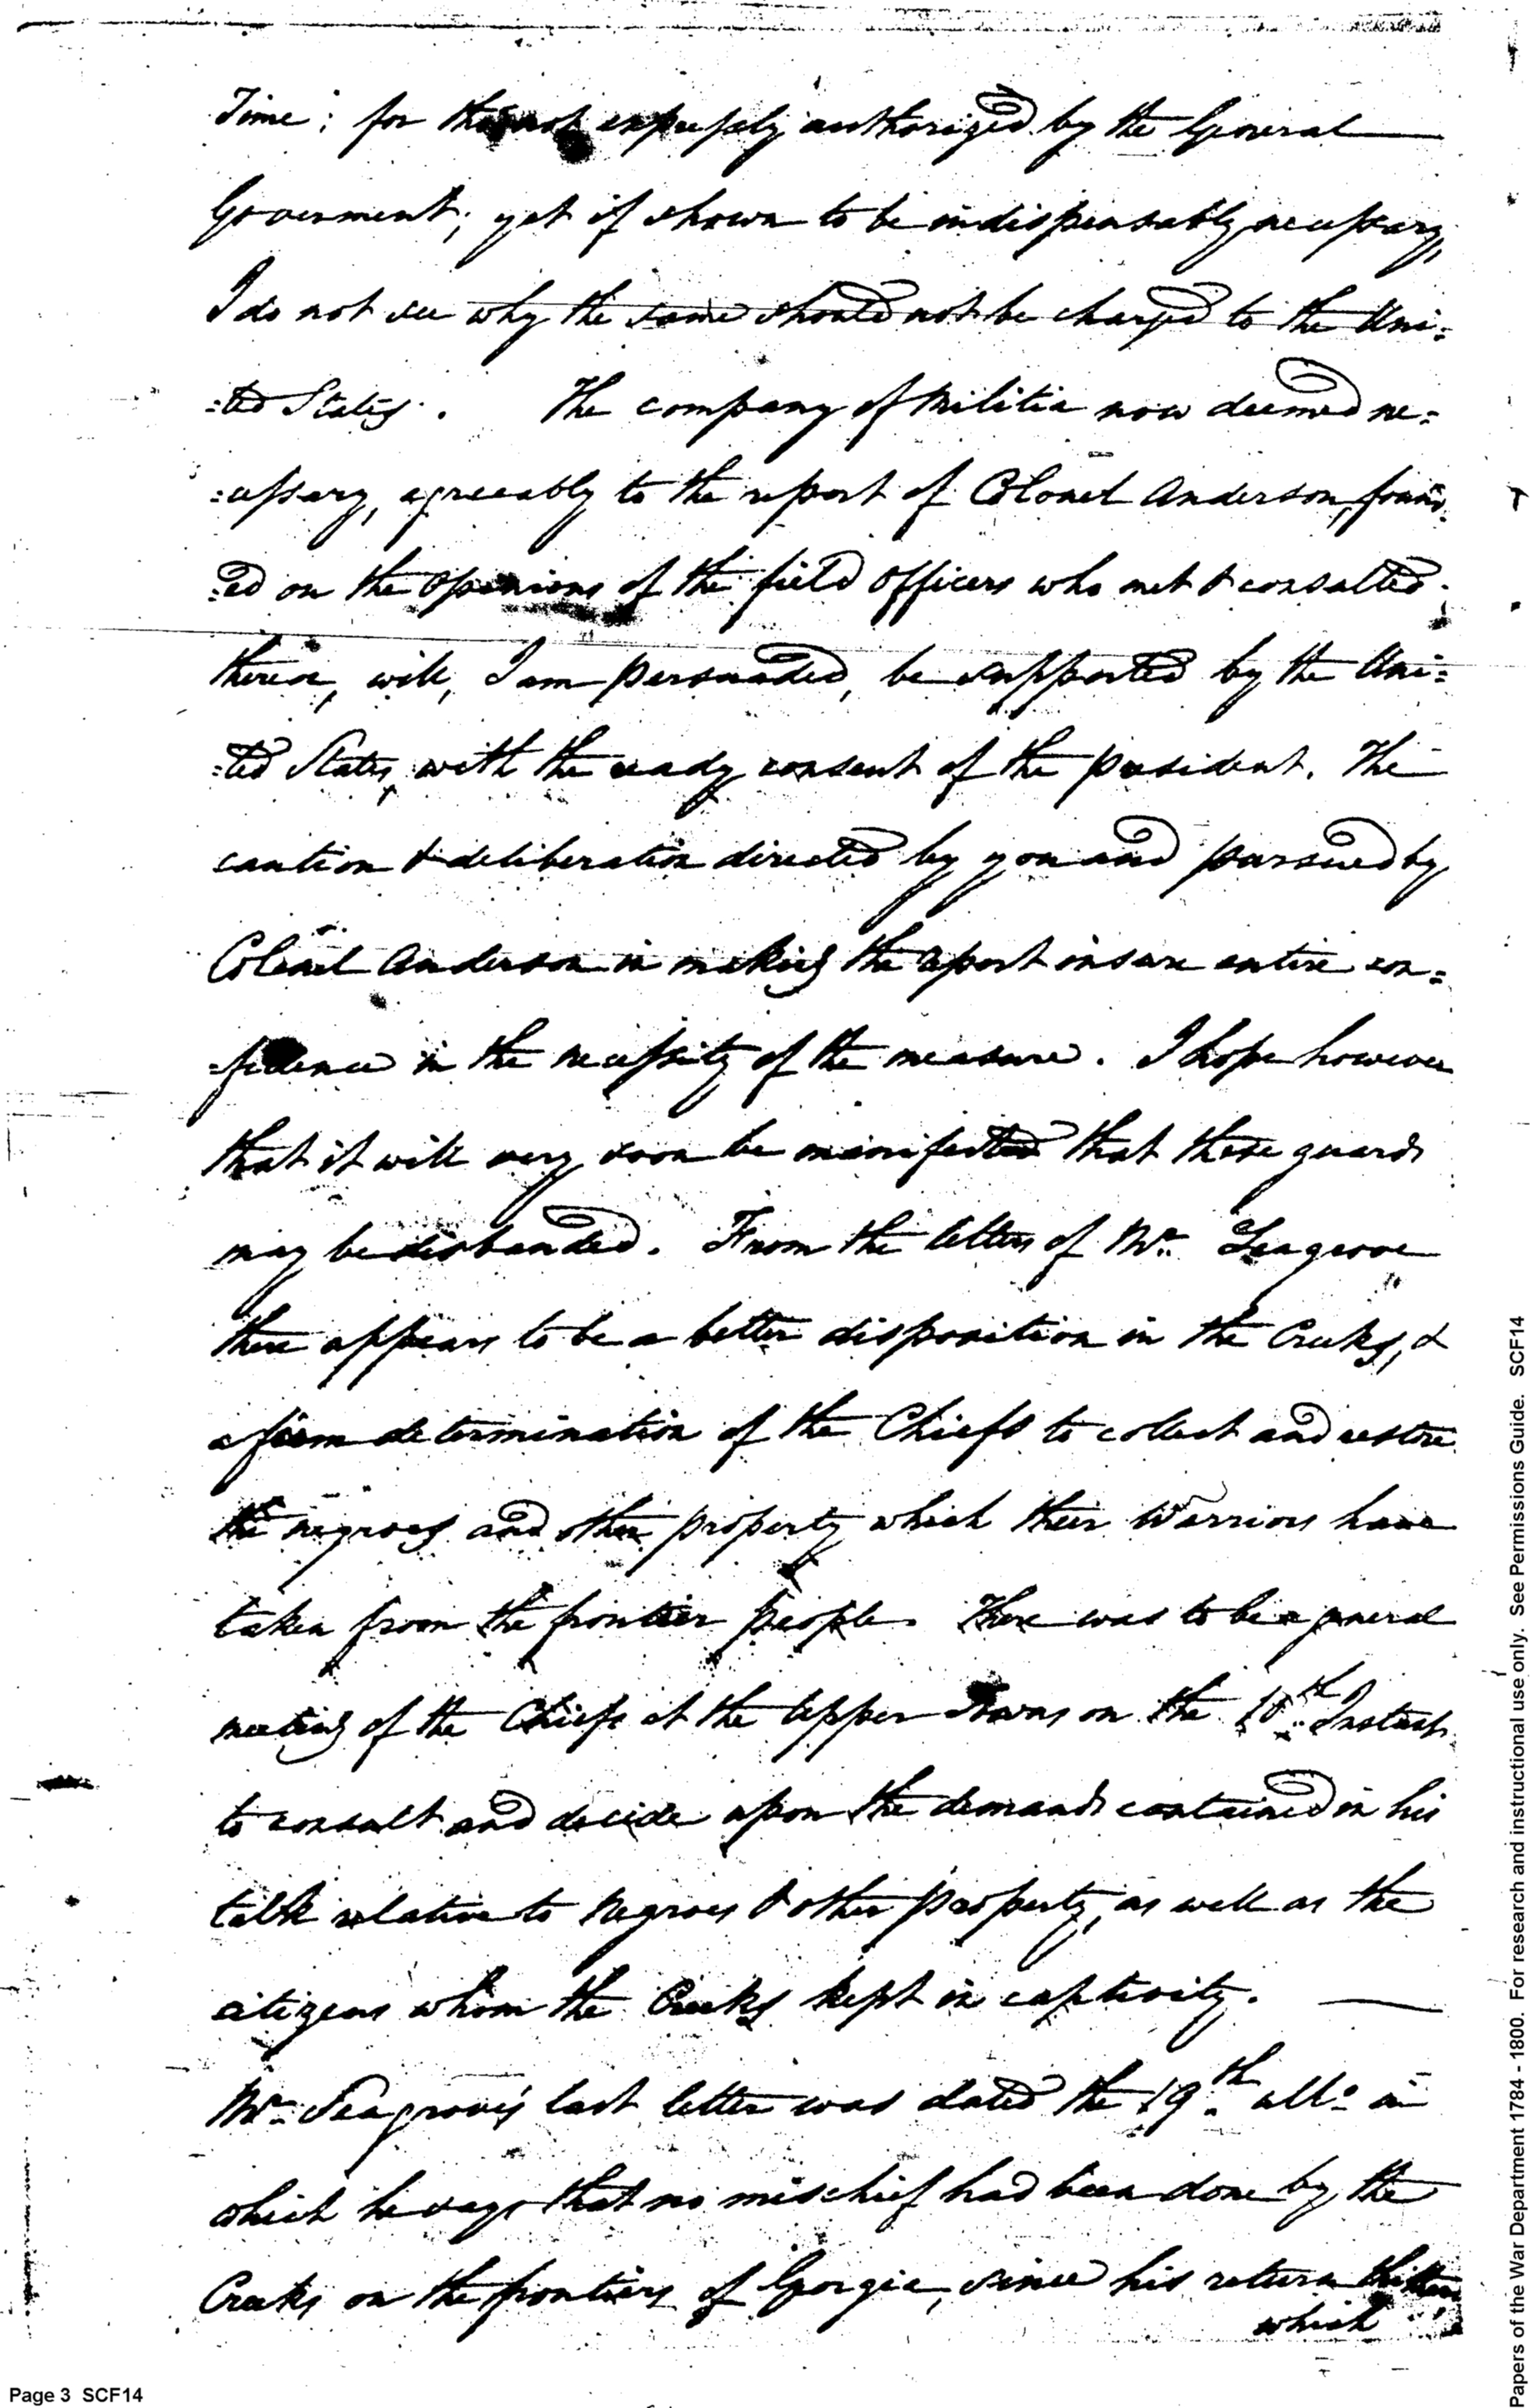 Time; for tho' not expressly authorized by the General
Goverment; yet if shown to be indispensably necessary,
I do not see why the same should not be charged to the Uni=
=ted States. The company of Militia now deemed ne=
=cessary, agreeably to the report of Colonel Anderson, found
=ed on the opinions of the field officers who met & consulted
therein, will, I am persuaded, be supported by the Uni=
=ted States, with the ready consent of the president. The
caution & deliberation directed by you and pursued by
Colonel Anderson in making the report insure entire con=
=fidence in the necessity of the measure. I hope however
that it will very soon be manifested that these guards
may be disbanded. From the letters of Mr. Seagrove
there appears to be a better disposition in the Creeks, &
a firm determination of the Chiefs to collect and restore
the negroes and other property which their Warriors have
taken from the frontier people. There was to be a general
meeting of the Chiefs at the upper Towns on the 10th Instant
to consult and decide upon the demands contained in his
talk relative to Negroes & other property, as well as the
citizens whom the Creeks kept in captivity.
Mr. Seagrove's last letter was dated the 19th ulto in
which he says that no mischief had been done by the
Creeks on the frontiers of Georgia, since his return thither
which
Page 3 SCF14
Papers of the War Department 1784 - 1800. For research and instructional use only. See Permissions Guide. SCF14